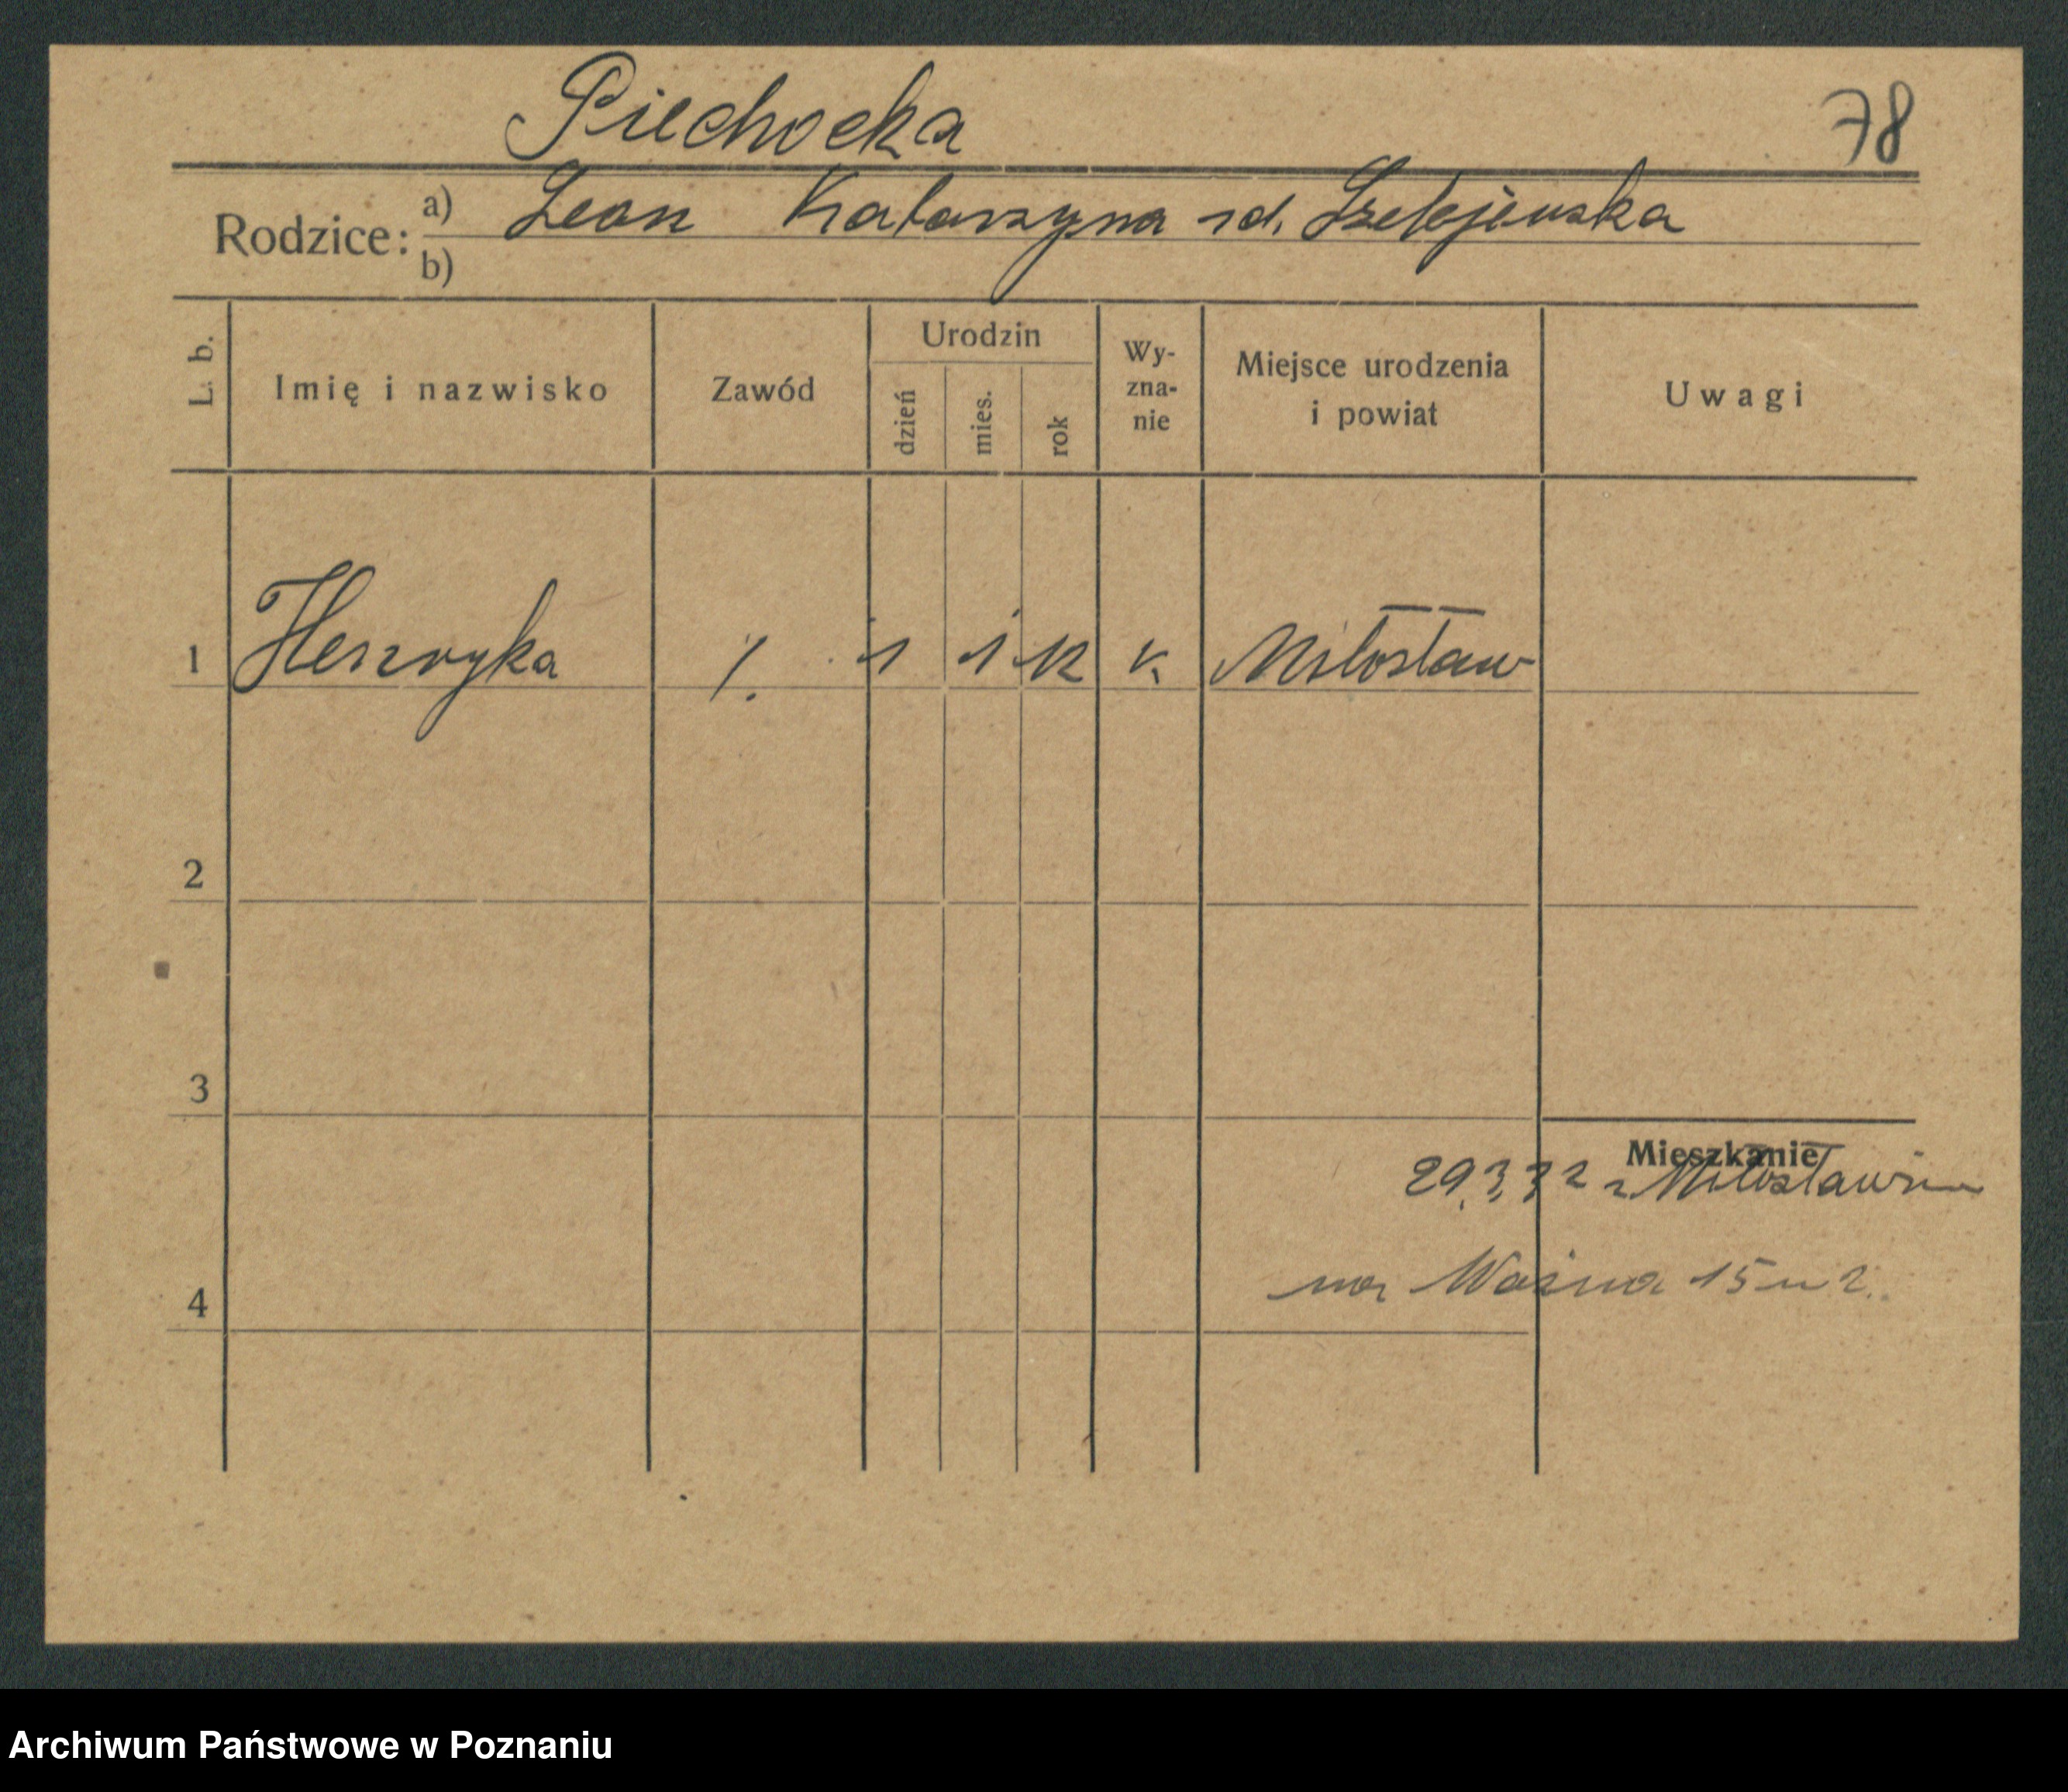 Piechocka
78
Rodzice: a) Leon Katarzyna rd. Szelejewska
b)
L. b.
Imię i nazwisko
Zawód
Urodzin
dzień
mies.
rok
Wy-
zna-
nie
Miejsce urodzenia
i powiat
Uwagi
1 Henryka /. 1 1 12 k Miłosław
2
3
4
Mieszkanie
29.3.32 z Miłosławia
na Ważna 15 m 2.
Archiwum Państwowe w Poznaniu